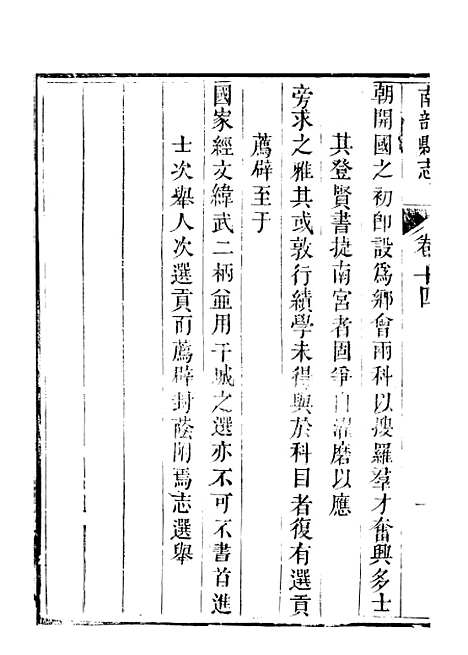 南部縣志
卷十四
一
朝開國之初卽設爲鄉會兩科以搜羅羣才奮興多士
其登賢書捷南宮者固爭自濯磨以應
旁求之雅其或敦行績學未得與於科目者復有選貢
薦辟至于
國家經文緯武二柄並用干城之選亦不可不書首進
士次舉人次選貢而薦辟封蔭附焉志選舉